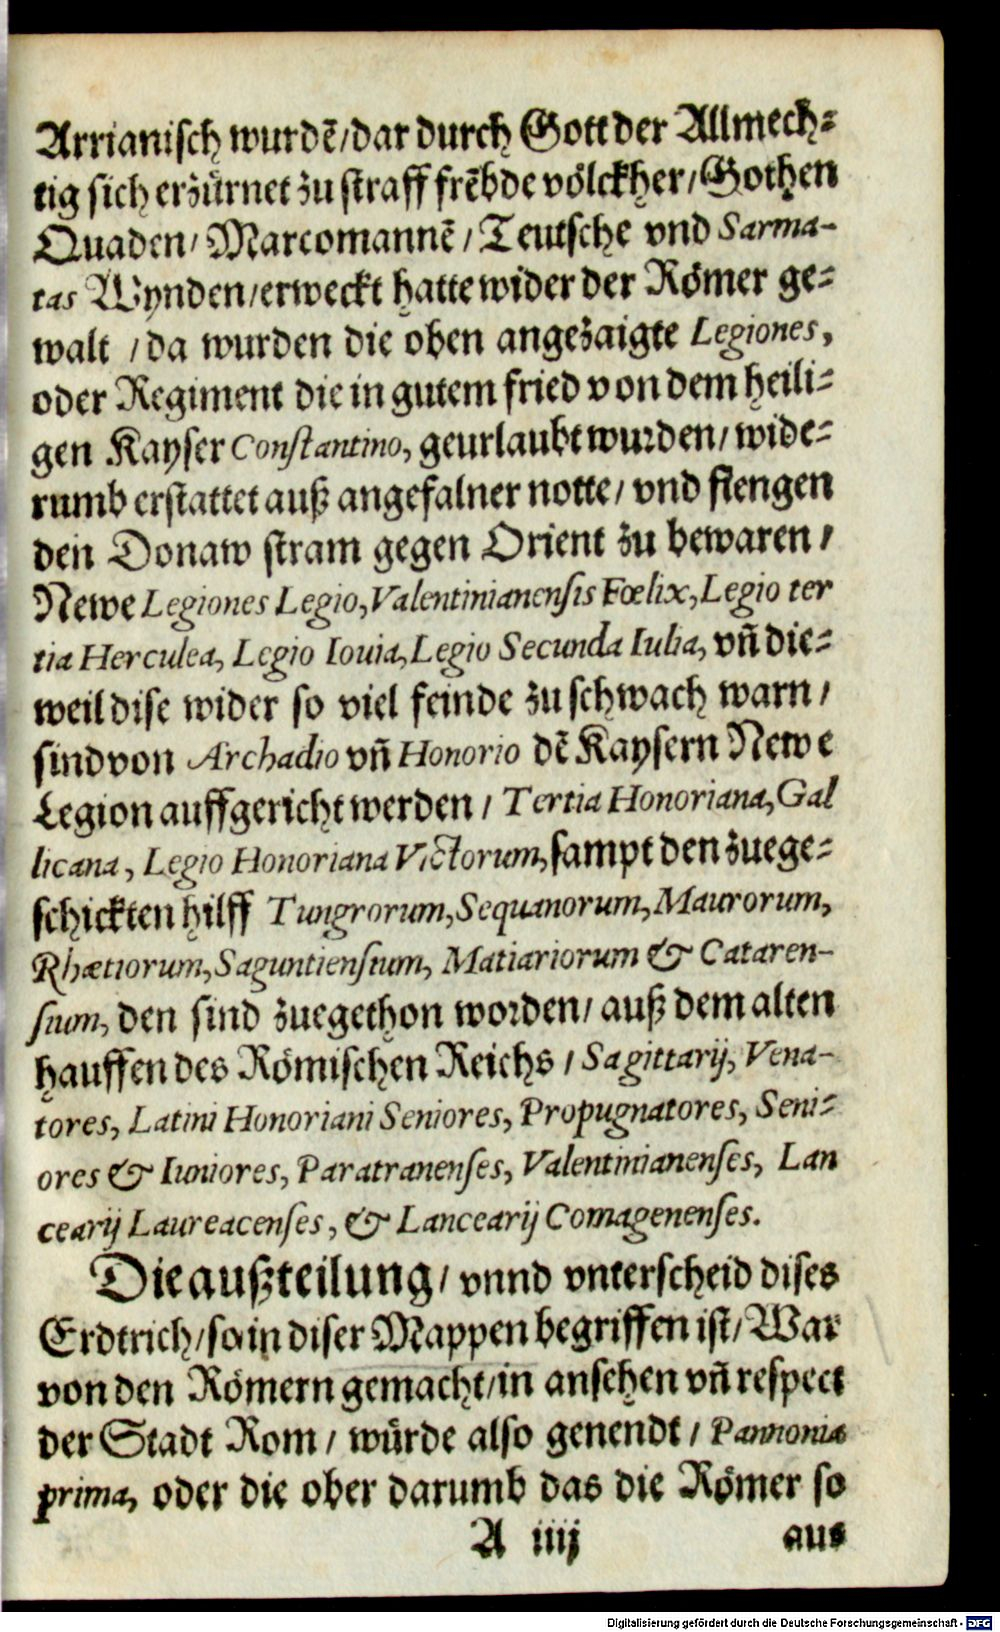 Arrianisch wurdē/dar durch Gott der Allmech-
tig sich erzürnet zu straff frēbde völckher/Gothen
Quaden/ Marcomannē/ Teutsche vnd Sarma-
tas Wynden/erweckt hatte wider der Römer ge-
walt / da wurden die oben angezaigte Legiones,
oder Regiment die in gutem fried von dem heili-
gen Kayser Constantino, geurlaubt wurden/ wide-
rumb erstattet auß angefalner notte/ vnd fiengen
den Donaw stram gegen Orient zu bewaren/
Newe Legiones Legio, Valentinianensis Fœlix, Legio ter
tia Herculea, Legio Iouia, Legio Secunda Iulia, vñ die-
weil dise wider so viel feinde zu schwach warn/
sind von Archadio vñ Honorio dē Kaysern Newe
Legion auffgericht werden/ Tertia Honoriana, Gal
licana, Legio Honoriana Victorum, sampt den zuege-
schickten hilff Tungrorum, Sequanorum, Maurorum,
Rhætiorum, Saguntiensium, Matiariorum & Cataren-
sium, den sind zuegethon worden/ auß dem alten
hauffen des Römischen Reichs/ Sagittarij, Vena-
tores, Latini Honoriani Seniores, Propugnatores, Seni-
ores & Iuniores, Paratranenses, Valentinianenses, Lan
cearij Laureacenses, & Lancearij Comagenenses.
Die außteilung/ vnnd vnterscheid dises
Erdtrich/ so in diser Mappen begriffen ist/ War
von den Römern gemacht/ in ansehen vñ respect
der Stadt Rom/ würde also genendt/ Pannonia
prima, oder die ober darumb das die Römer so
A iiij aus
Digitalisierung gefördert durch die Deutsche Forschungsgemeinschaft - DFG